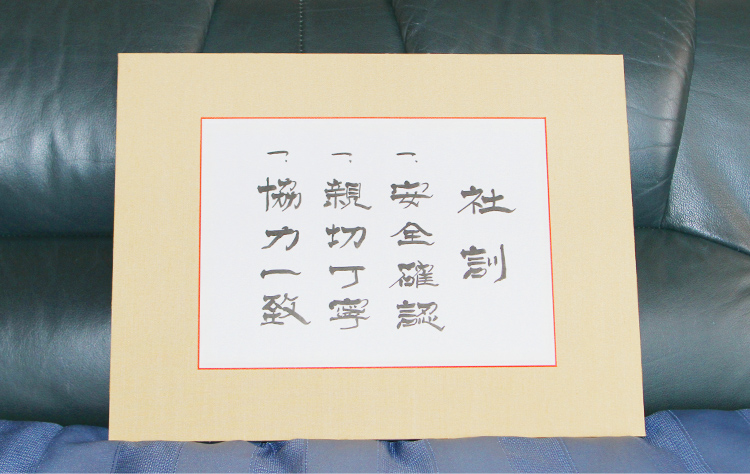 社訓
一、安全確認
一、親切丁寧
一、協力一致